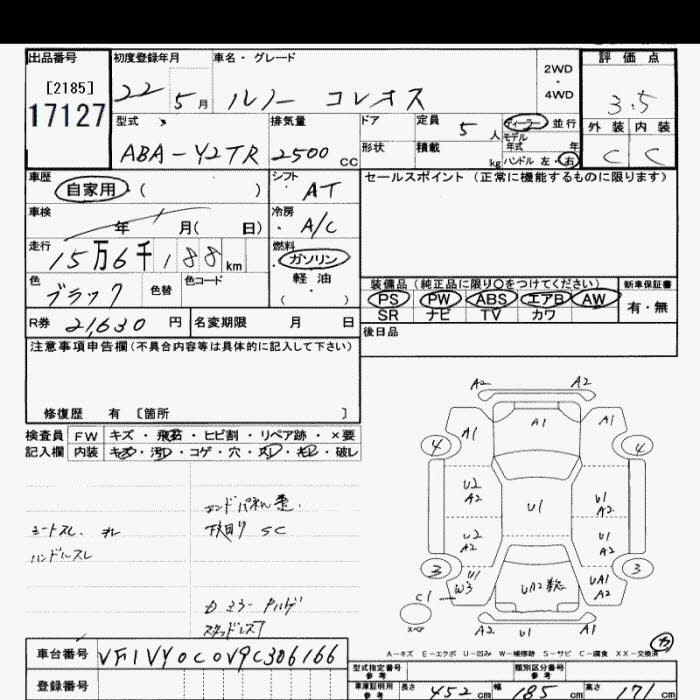 出品番号 初度登録年月 車名・グレード 2WD ・ 4WD 評価点
[2185] 22 5月 ルノー コレオス 3.5
17127
型式 排気量 ドア 定員 5人 ディーラー・並行 外装 内装
形状 積載 kg モデル年式 年 C C
ABA-Y2TR 2500 CC ハンドル 左・右
車歴 シフト セールスポイント(正常に機能するものに限ります)
自家用 ( ) AT
車検 年 月( 日) 冷房 A/C
走行 15万6千188km 燃料 ガソリン
軽油
( )
色 ブラック 色替 色コード
装備品(純正品に限り○をつけてください) 新車保証書
PS PW ABS エアB AW 有・無
SR ナビ TV カワ
R券 21,630 円 名変期限 月 日 後日品
注意事項申告欄(不具合内容等は具体的に記入して下さい)
修復歴 有 [箇所 ]
検査員 FW キズ・飛石・ヒビ割・リペア跡・×要
記入欄 内装 キズ・汚レ・コゲ・穴・凹・破レ
A2 A2
A1 A1 A1
4 4
U2 A2 U1 U1 A2
U2 A2 U1 A2
3 3
U1 W3 UA1 A2
C1
スペア
A2 U1 A2
シートスレ
ハンドルスレ
下廻り SC
スタッドレス
A-キズ E-エクボ U-凹み W-補修跡 S-サビ C-腐食 XX-交換済
車台番号 VF1VY0C0V9C306166
登録番号
型式指定番号 参考 類別区分番号 参考
車庫証明用 参考 長さ 452cm 幅 185cm 高さ 171cm